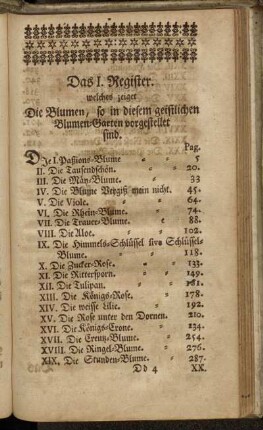 Das I. Register.
welches zeiget
Die Blumen, so in diesem geistlichen
Blumen-Garten vorgestellet
sind.
Pag.
DJe I. Passions-Blume 5
II. Die Tausendschön. 20.
III. Die May-Blume. 33
IV. Die Blume Vergiß mein nicht. 45.
V. Die Viole. 64.
VI. Die Rhein-Blume. 74.
VII. Die Trauer-Blume. 88.
VIII. Die Aloe. 102.
IX. Die Himmels-Schlüssel sive Schlüssel-
Blume. 118.
X. Die Zucker-Rose. 133.
XI. Die Rittersporn. 149.
XII. Die Tulipan. 161.
XIII. Die Königs-Rose. 178.
XIV. Die weisse Lilie. 192.
XV. Die Rose unter den Dornen. 210.
XVI. Die Königs-Crone. 234.
XVII. Die Creutz-Blume. 254.
XVIII. Die Ringel-Blume. 276.
XIX. Die Stunden-Blume. 287.
Dd 4 XX.